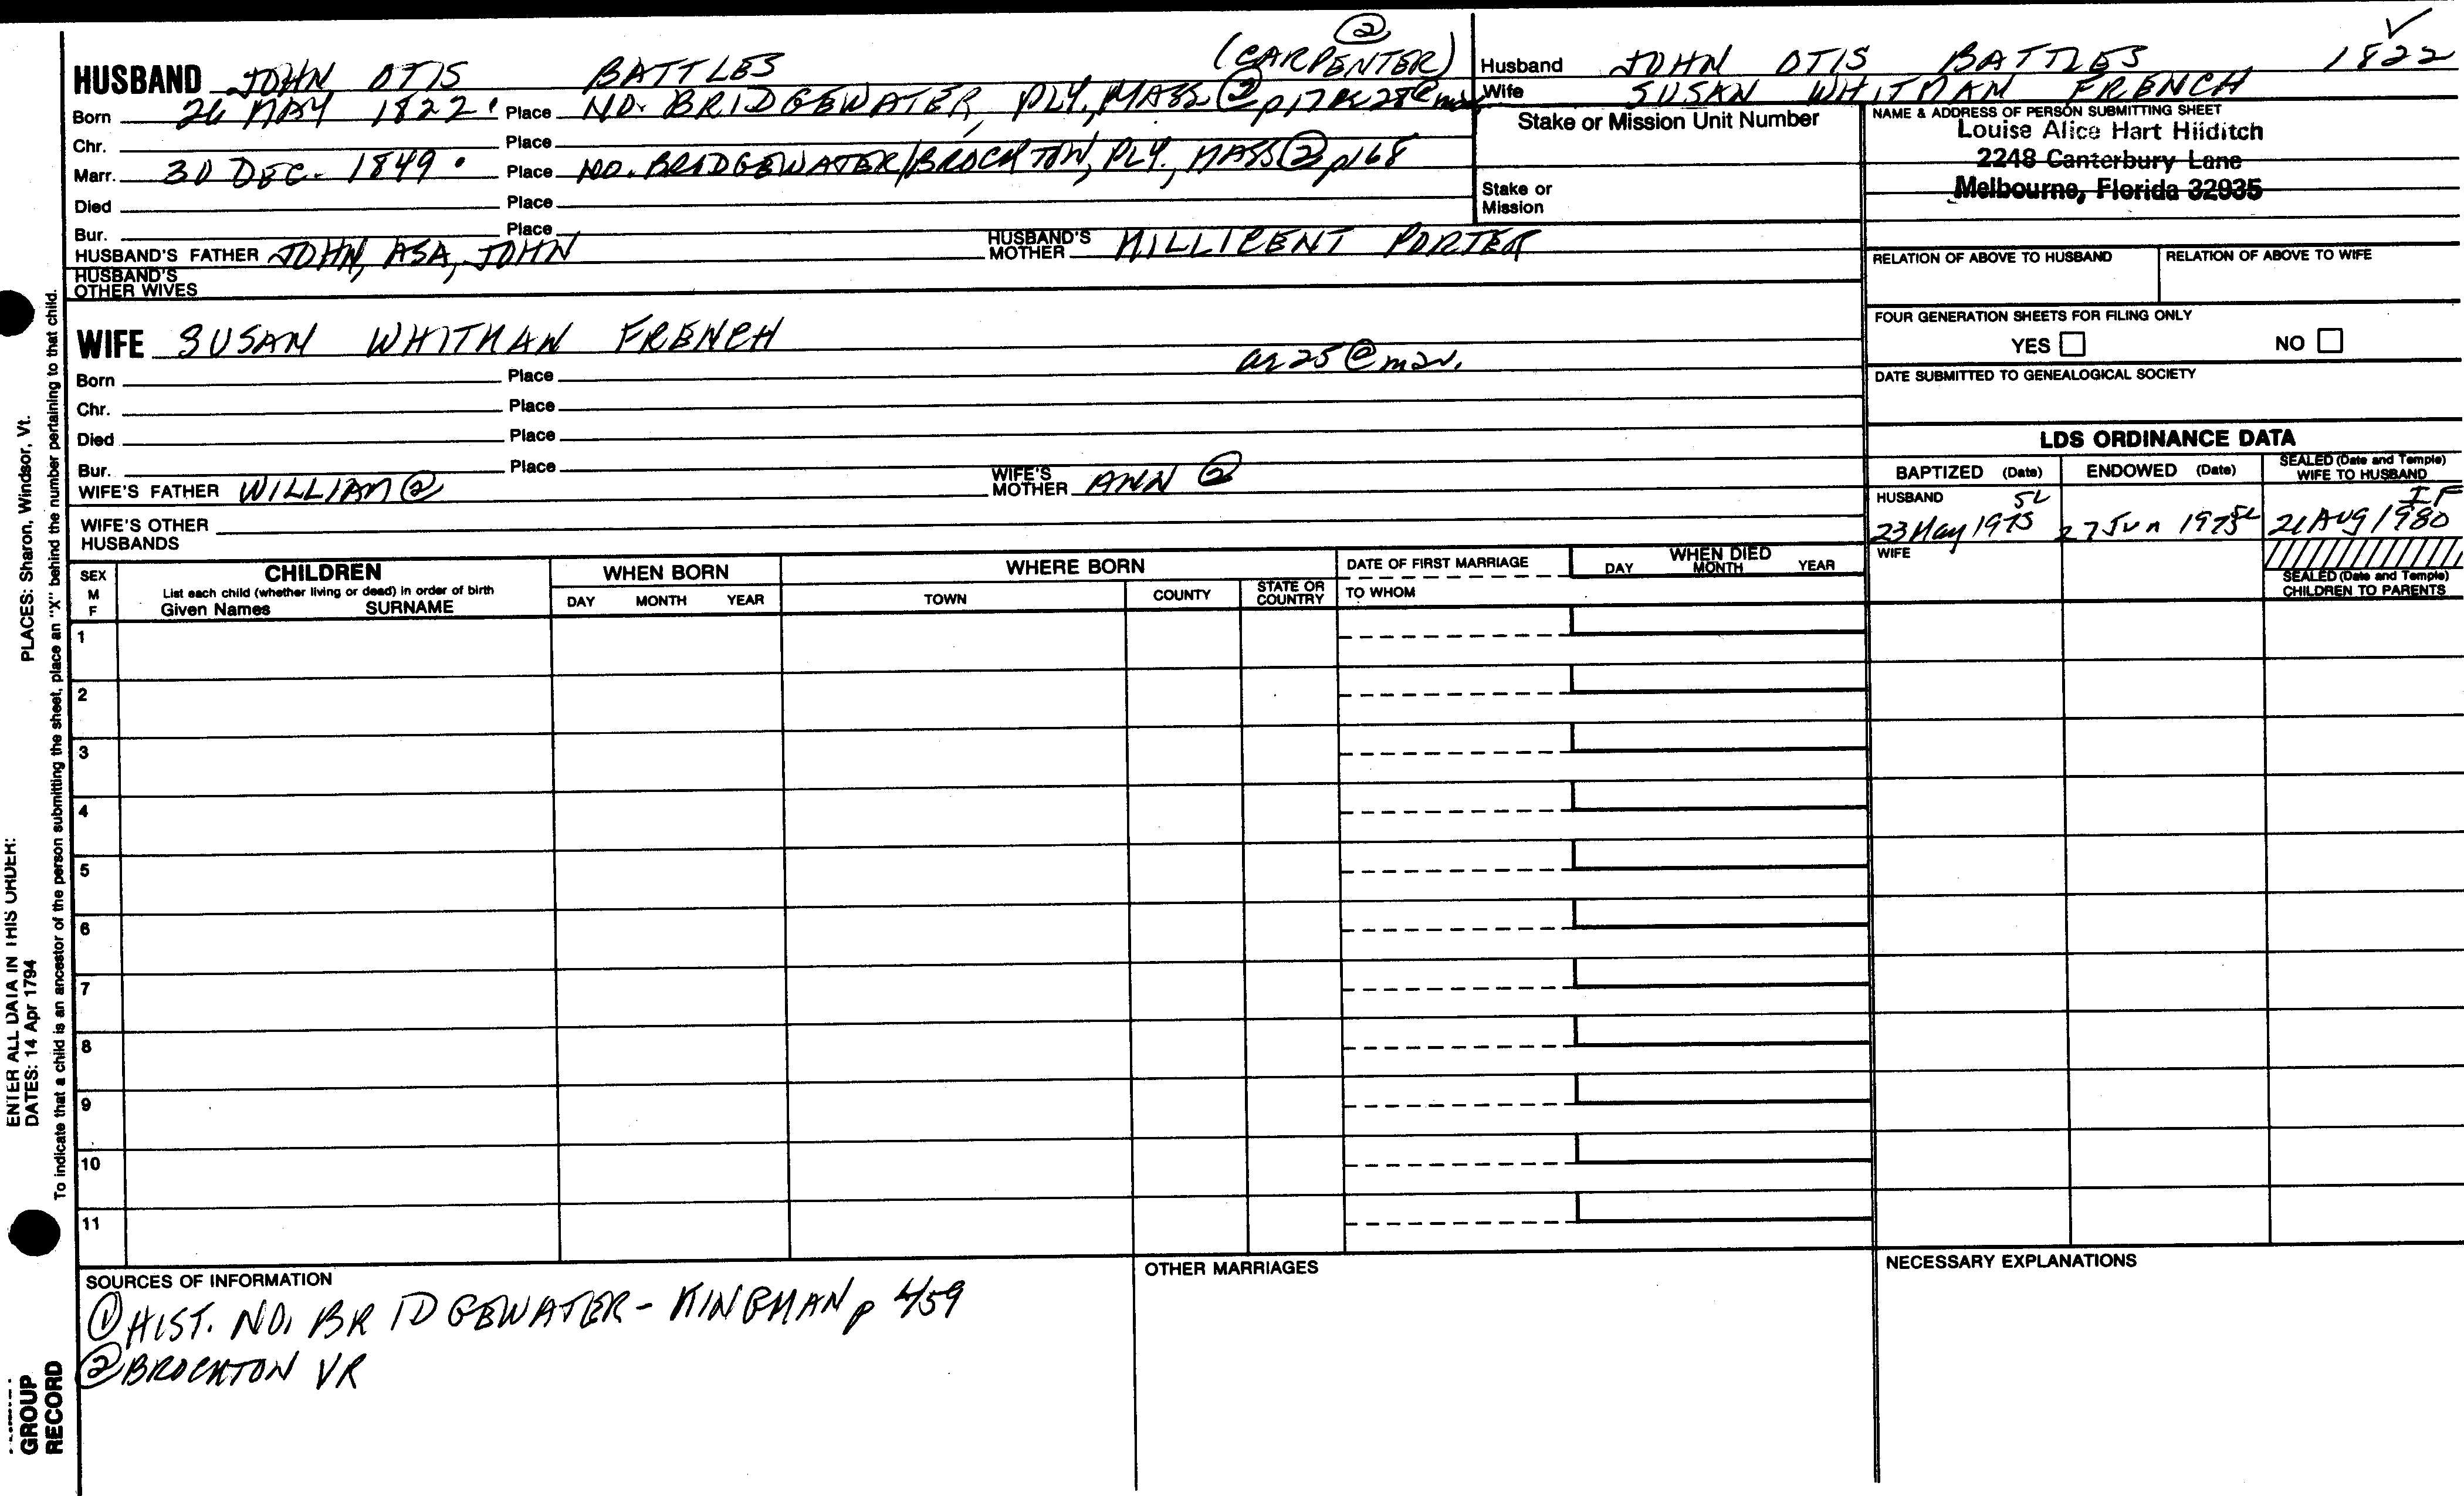 HUSBAND JOHN OTIS BATTLES (CARPENTER) ②
Born 26 MAY 1822 Place NO. BRIDGEWATER, PLY, MASS ② p17 ae 28 @ mar
Chr. Place
Marr. 30 DEC. 1849 Place NO. BRIDGEWATER/BROCKTON, PLY., MASS ② p168
Died Place
Bur. Place
HUSBAND'S FATHER JOHN, ASA, JOHN HUSBAND'S MOTHER MILLICENT PORTER
HUSBAND'S OTHER WIVES
WIFE SUSAN WHITMAN FRENCH
ae 25 @ mar.
Born Place
Chr. Place
Died Place
Bur. Place
WIFE'S FATHER WILLIAM ② WIFE'S MOTHER ANN ②
WIFE'S OTHER HUSBANDS
Husband JOHN OTIS BATTLES 1822 ✓
Wife SUSAN WHITMAN FRENCH
Stake or Mission Unit Number
Stake or Mission
NAME & ADDRESS OF PERSON SUBMITTING SHEET
Louise Alice Hart Hilditch
2248 Canterbury Lane
Melbourne, Florida 32935
RELATION OF ABOVE TO HUSBAND RELATION OF ABOVE TO WIFE
FOUR GENERATION SHEETS FOR FILING ONLY
YES NO
DATE SUBMITTED TO GENEALOGICAL SOCIETY
LDS ORDINANCE DATA
BAPTIZED (Date) ENDOWED (Date) SEALED (Date and Temple) WIFE TO HUSBAND
HUSBAND SL IF
23 May 1975 27 Jun 1975 SL 21 AUG 1980
WIFE
SEALED (Date and Temple) CHILDREN TO PARENTS
SEX M F
CHILDREN
List each child (whether living or dead) in order of birth
Given Names SURNAME
WHEN BORN
DAY MONTH YEAR
WHERE BORN
TOWN COUNTY STATE OR COUNTRY
DATE OF FIRST MARRIAGE
TO WHOM
WHEN DIED
DAY MONTH YEAR
1
2
3
4
5
6
7
8
9
10
11
SOURCES OF INFORMATION
① HIST. NO. BRIDGEWATER - KINGMAN p 459
② BROCKTON VR
OTHER MARRIAGES
NECESSARY EXPLANATIONS
ENTER ALL DATA IN THIS ORDER:
DATES: 14 Apr 1794
PLACES: Sharon, Windsor, Vt.
To indicate that a child is an ancestor of the person submitting the sheet, place an "X" behind the number pertaining to that child.
GROUP
RECORD